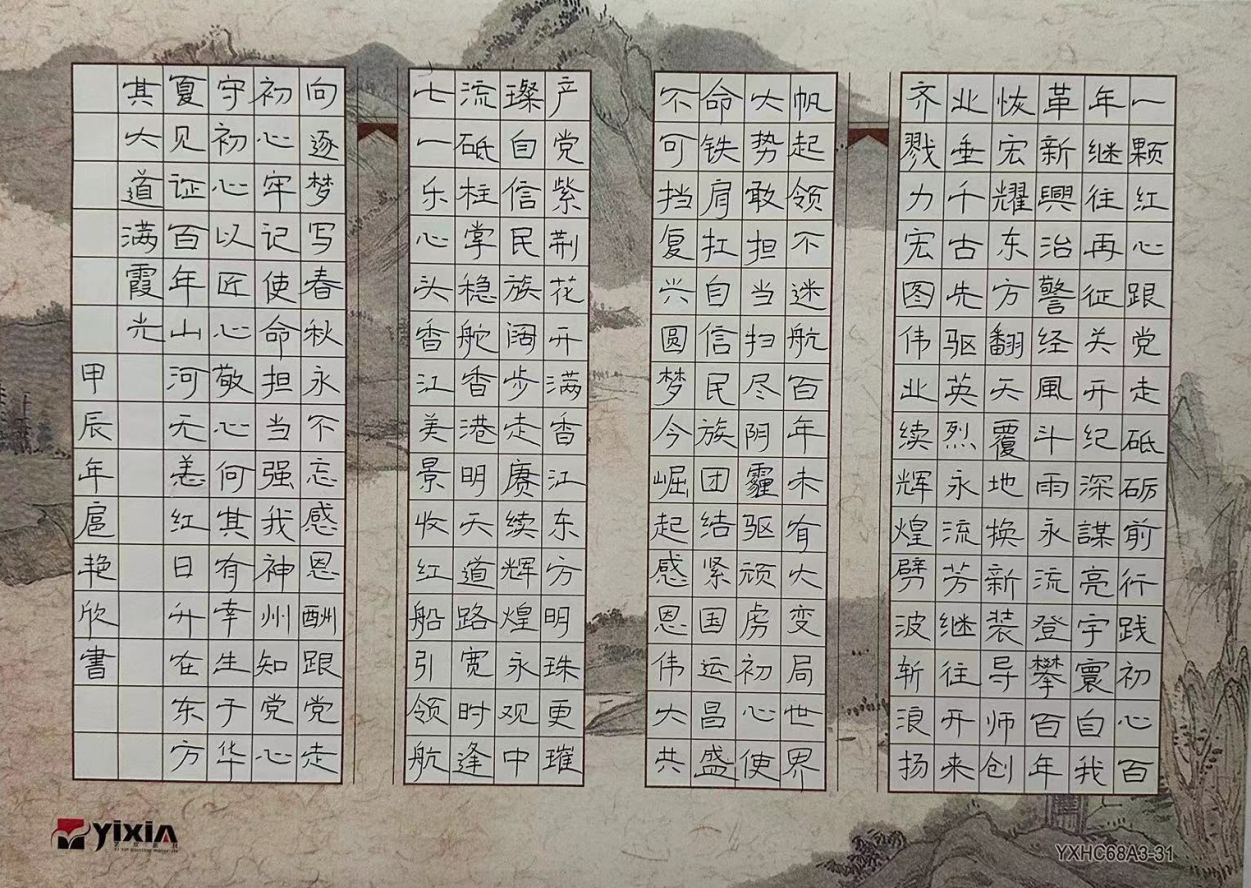 一颗红心跟党走砥砺前行践初心百
年继往再征关开纪深謀亮宇寰自我
革新興治警经風斗雨永流登攀百年
恢宏耀东方翻天覆地换新装导师创
业垂千古先驱英烈永流芳继往开来
齐戮力宏图伟业续辉煌劈波斩浪扬
帆起领不迷航百年未有大变局世界
大势敢担当扫尽阴霾驱顽虏初心使
命铁肩扛自信民族团结紧国运昌盛
不可挡复兴圆梦今崛起感恩伟大共
产党紫荆花开满香江东方明珠更璀
璨自信民族阔步走赓续辉煌永观中
流砥柱掌稳舵香港明天道路宽时逢
七一乐心头香江美景收红船引领航
向逐梦写春秋永不忘感恩酬跟党走
初心牢记使命担当强我神州知党心
守初心以匠心敬心何其有幸生于华
夏见证百年山河无恙红日升在东方
其大道满霞光
甲辰年扈艳欣書
yixin
YXHC68A3-31